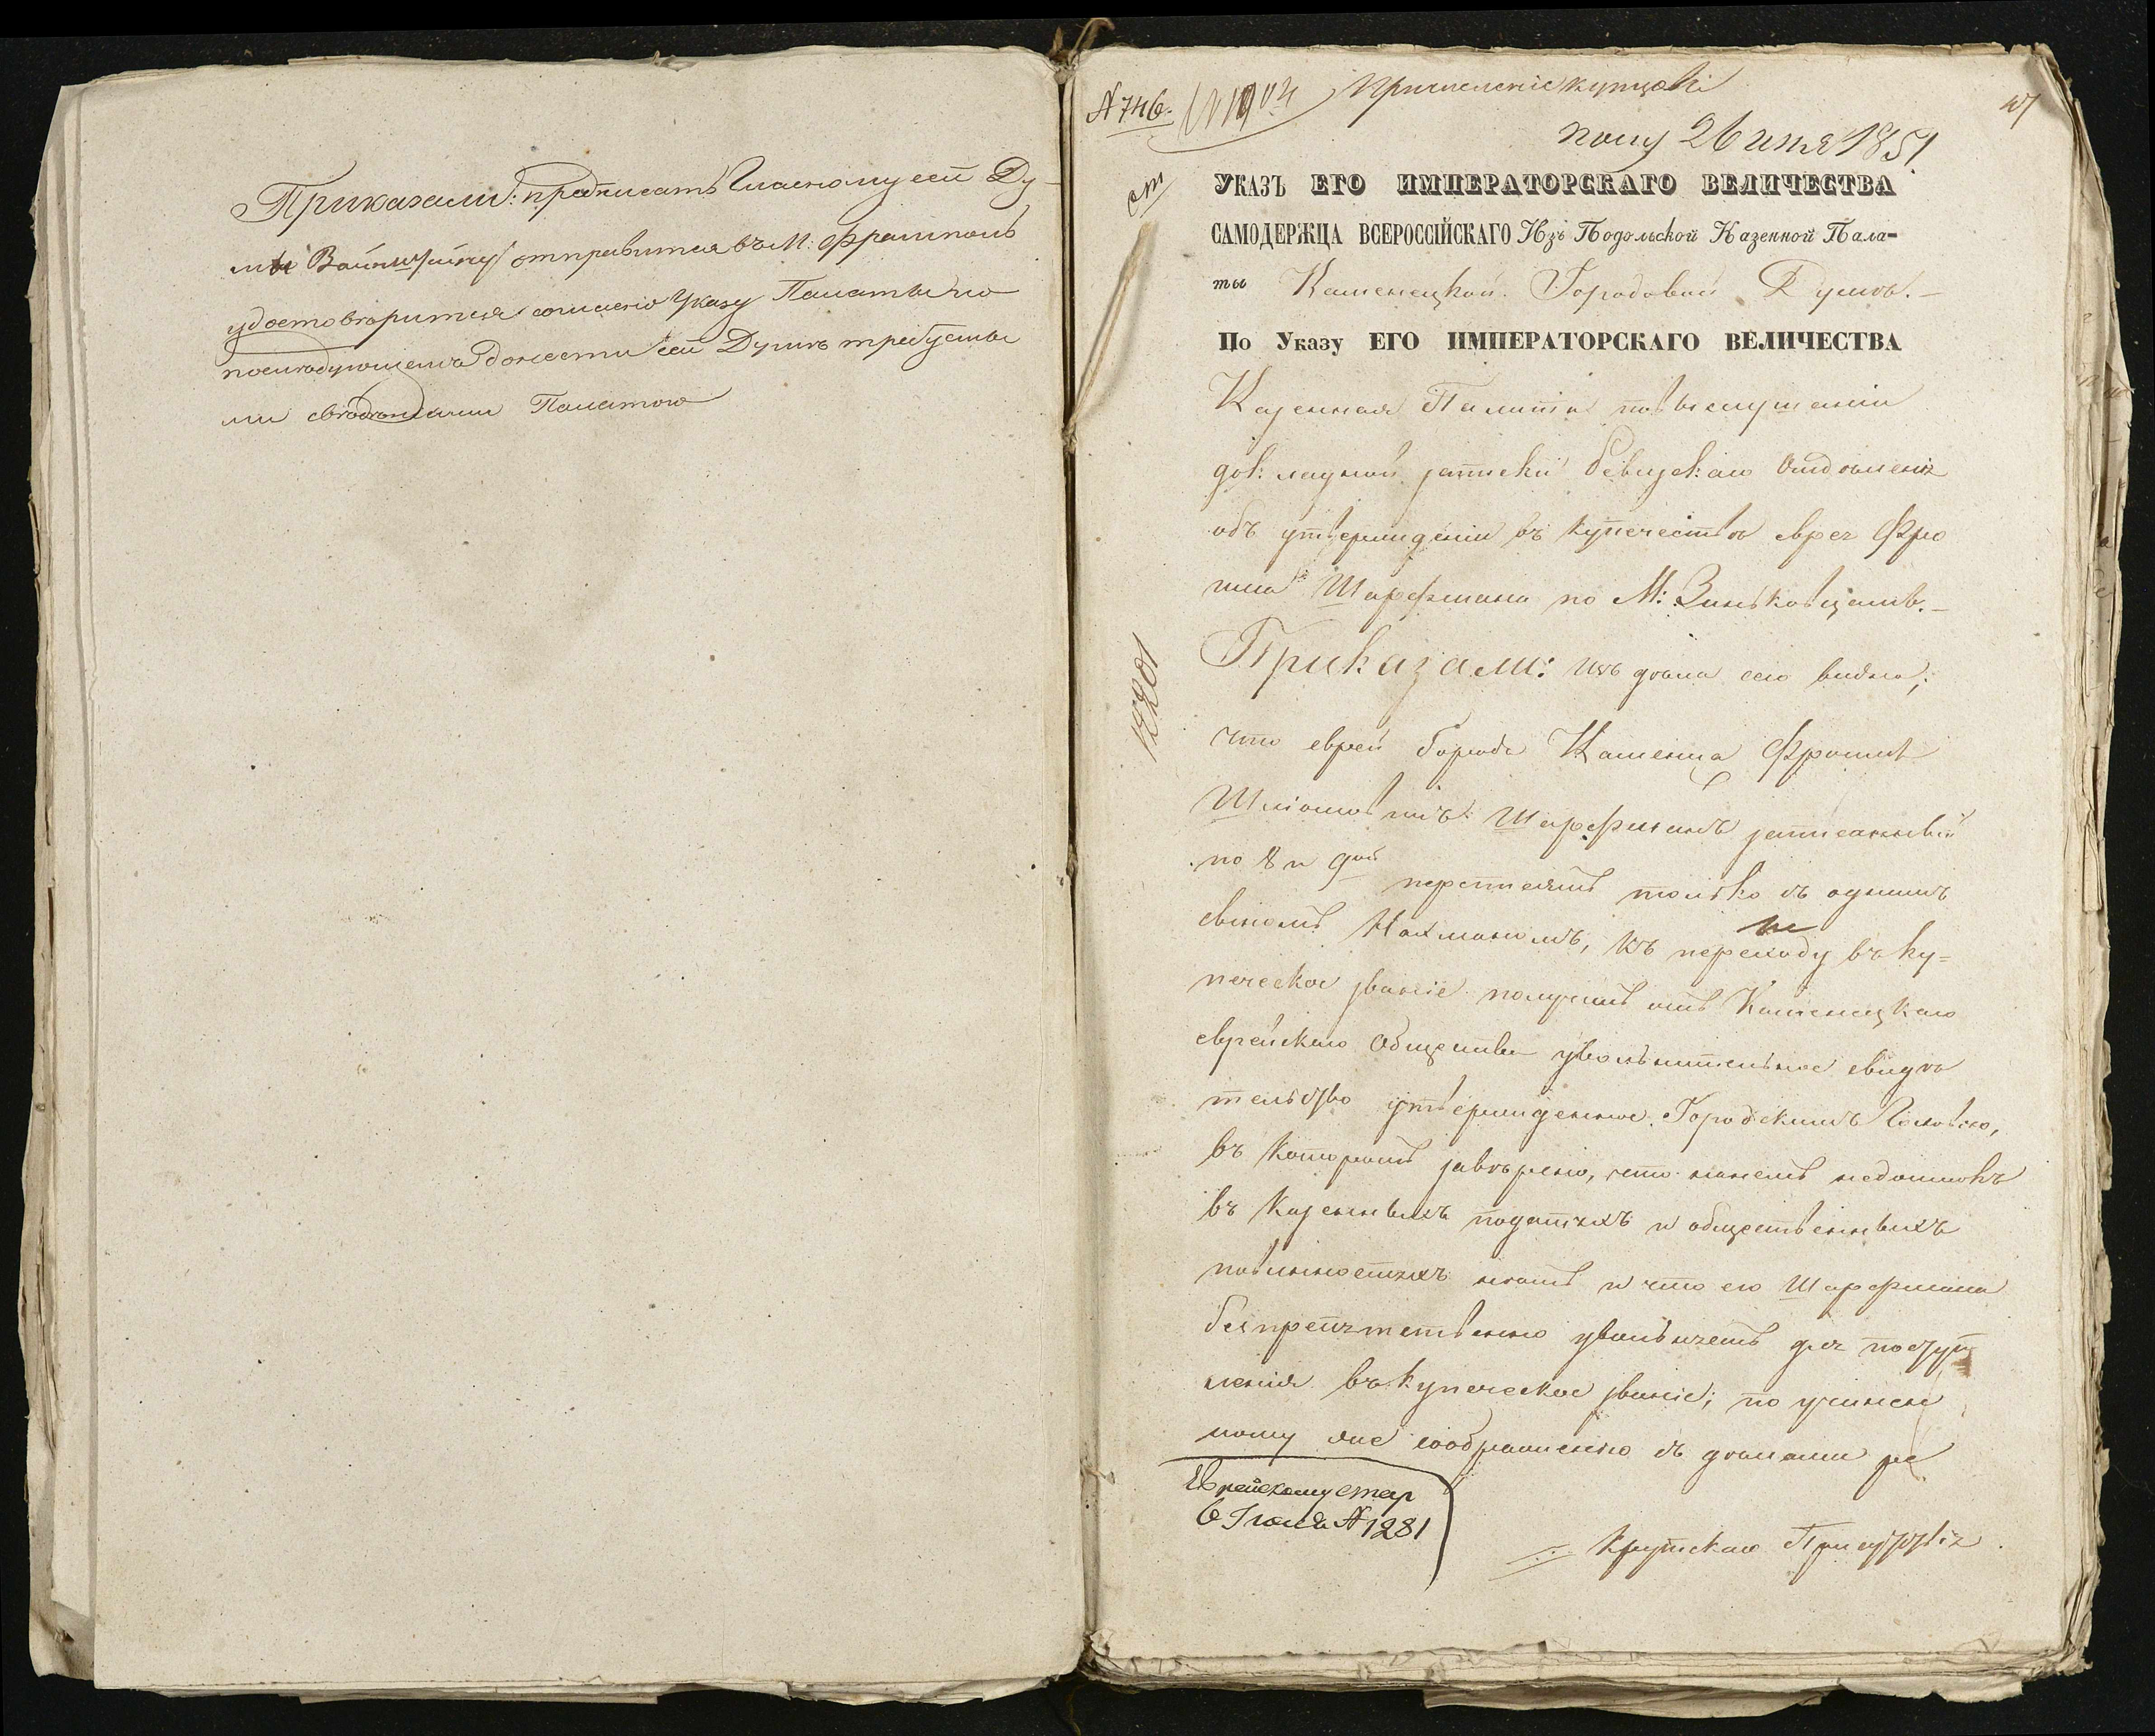 Приказали: предписать Гласному сей Ду-
мы Вайнштейну отправится въ М: Фрампонь
удостоверится согласно Указу Палаты и о
последующемъ донести сей Думѣ требуемы
ми свѣдѣніями Палатою
№ 746.
Причисленіе купцовъ
полу 26 июня 1851
УКАЗЪ ЕГО ИМПЕРАТОРСКАГО ВЕЛИЧЕСТВА
САМОДЕРЖЦА ВСЕРОССІЙСКАГО Изъ Подольской Казенной Пала=
ты Каменецкой Городовой Думѣ.—
По Указу ЕГО ИМПЕРАТОРСКАГО ВЕЛИЧЕСТВА
Казенная Палата по выслушаніи
док:ладной записки Ревизск:аго Отдѣленія
объ утвержденіи въ купечество еврея Фро
има Шарфмана по М: Зиньковцамъ.—
Приказали: изъ дѣла сего видно,
что еврей города Каменца Фроимъ
Шліомовичъ Шарфманъ записанный
по 8 и 9ой переписямъ только съ однимъ
сыномъ Нахманомъ, къ переходу въ ку=
печеское званіе получилъ отъ Каменецкаго
еврейскаго Общества увольнительное свидѣ
тельство утвержденное Городскимъ Головою,
въ которомъ завѣрено, что на немъ недоимокъ
въ казенныхъ податяхъ и общественныхъ
повинностяхъ нѣтъ и что его Шарфмана
безпрепятственно увольняетъ для поступ
ленія въ купеческое званіе; по учинен
ному же соображенію съ дѣлами ре
крутскаго Присутствія
12201
Еврейскому стар
6 Іюля № 1281